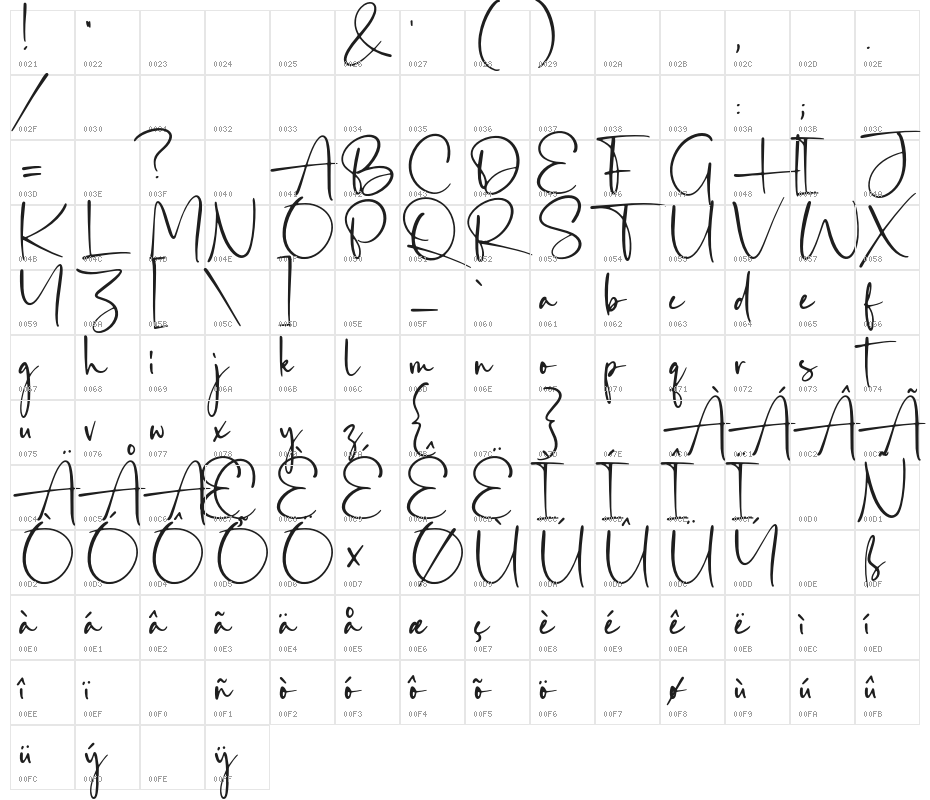 ! " & ' ( ) , .
0021 0022 0023 0024 0025 0026 0027 0028 0029 002A 002B 002C 002D 002E
/ : ;
002F 0030 0031 0032 0033 0034 0035 0036 0037 0038 0039 003A 003B 003C
= ? A B C D E F G H I J
003D 003E 003F 0040 0041 0042 0043 0044 0045 0046 0047 0048 0049 004A
K L M N O P Q R S T U V W X
004B 004C 004D 004E 004F 0050 0051 0052 0053 0054 0055 0056 0057 0058
Y Z [ \ ] _ ` a b c d e f
0059 005A 005B 005C 005D 005E 005F 0060 0061 0062 0063 0064 0065 0066
g h i j k l m n o p q r s t
0067 0068 0069 006A 006B 006C 006D 006E 006F 0070 0071 0072 0073 0074
u v w x y z { } À Á Â Ã
0075 0076 0077 0078 0079 007A 007B 007C 007D 007E 00C0 00C1 00C2 00C3
Ä Å Æ Ç È É Ê Ë Ì Í Î Ï Ñ
00C4 00C5 00C6 00C7 00C8 00C9 00CA 00CB 00CC 00CD 00CE 00CF 00D0 00D1
Ò Ó Ô Õ Ö × Ø Ù Ú Û Ü Ý ß
00D2 00D3 00D4 00D5 00D6 00D7 00D8 00D9 00DA 00DB 00DC 00DD 00DE 00DF
à á â ã ä å æ ç è é ê ë ì í
00E0 00E1 00E2 00E3 00E4 00E5 00E6 00E7 00E8 00E9 00EA 00EB 00EC 00ED
î ï ñ ò ó ô õ ö ø ù ú û
00EE 00EF 00F0 00F1 00F2 00F3 00F4 00F5 00F6 00F7 00F8 00F9 00FA 00FB
ü ý ÿ
00FC 00FD 00FE 00FF